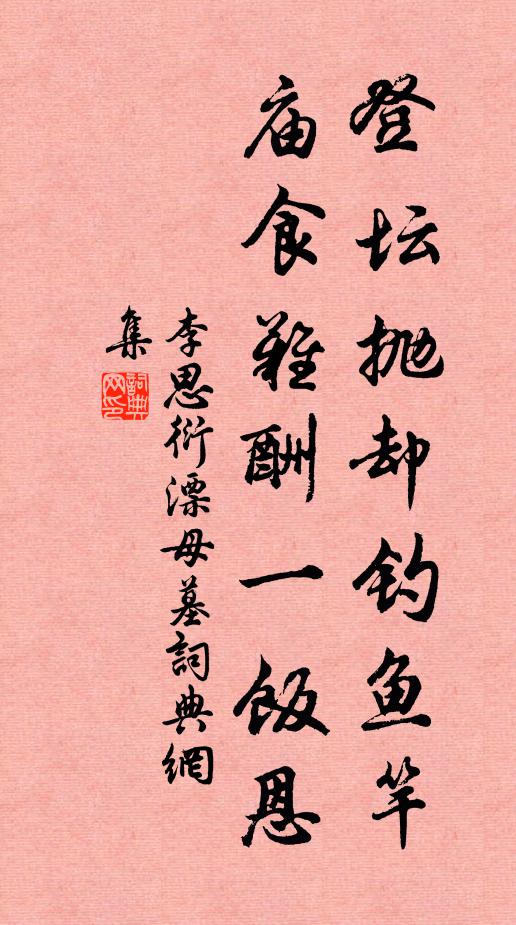 登坛抛却钓鱼竿
庙食难酬一饭恩
李思衍漂母墓詞典網
集
詞典
网印